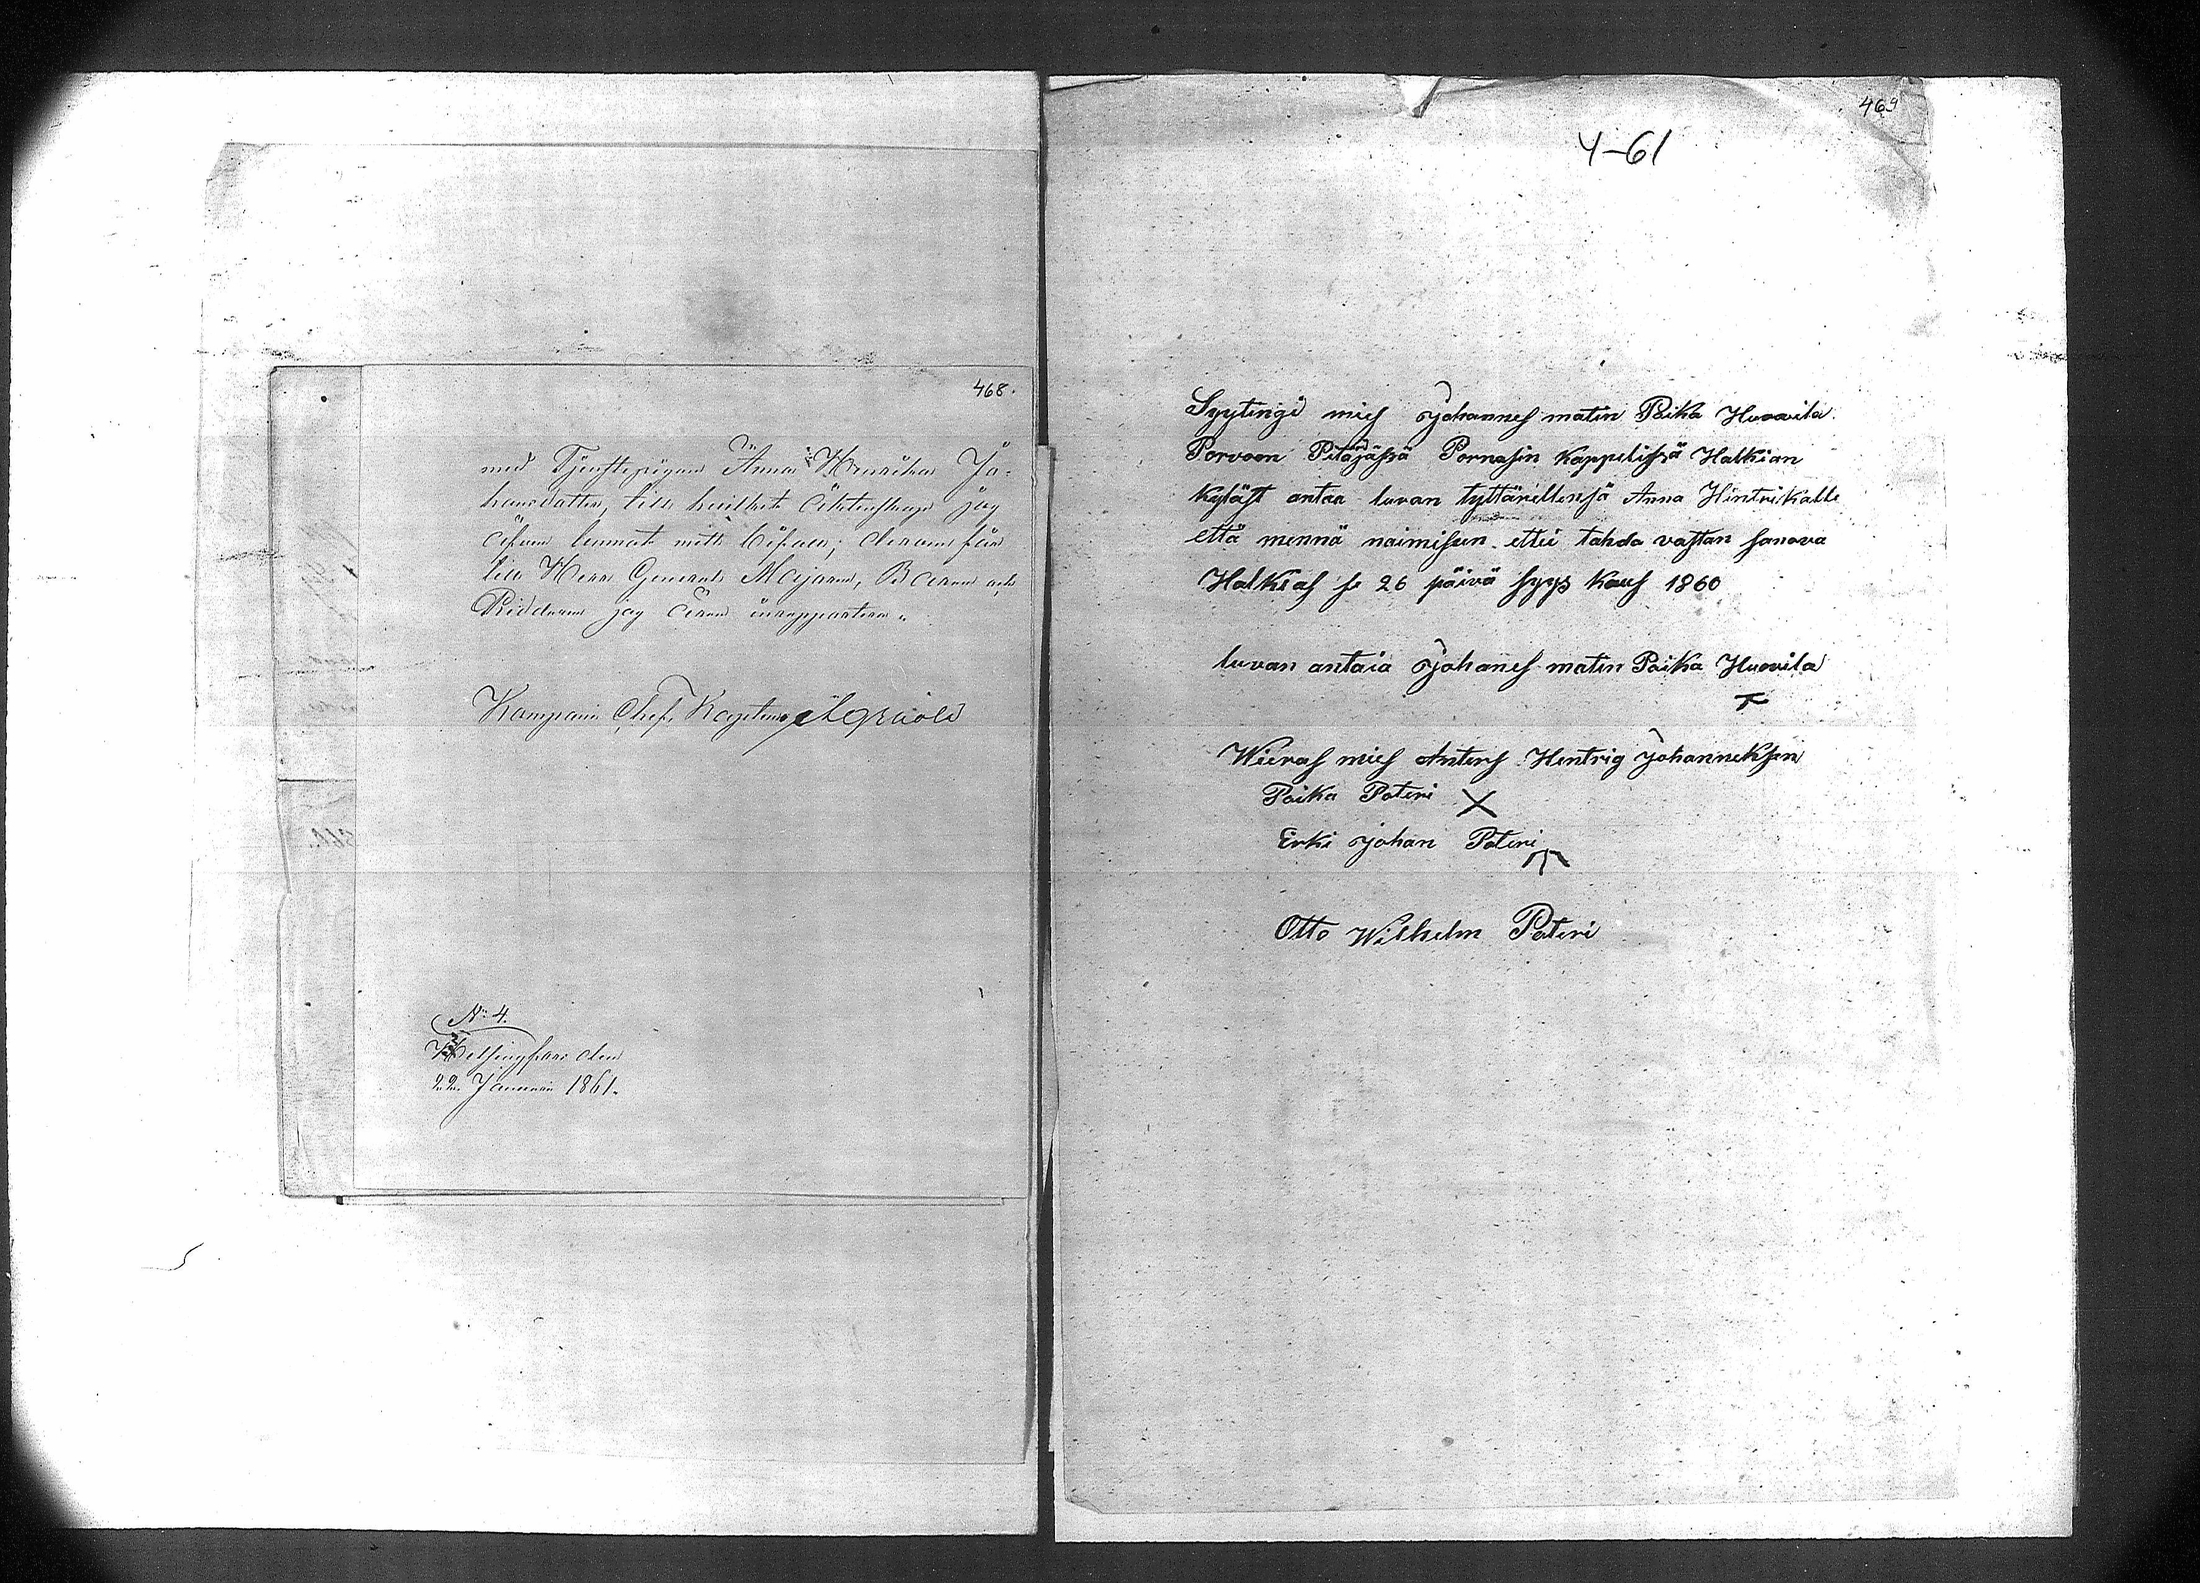 468.
med Tjenstepigan Anna Henrika Jo-
hansdotter, till hvilket äktenskap jag
äfven lemnat mitt bifall; derom får
till Herr General Majoren, Baron och
Riddaren jag äran inrapportera.
Kompanie Chef, Kapiten
No 4.
Helsingfors den
22 Januari 1861.
469
4-61
Syytingi mies Johannes matin Poika Huovila
Porvoon Pitäjässä Pornasin Kappelissa Halkian
Kyläst antaa luvan tyttärellensä Anna Hintrikalle
että mennä naimissen ettii tahdo vastan sanova
Halkias se 26 päivä syys kaus 1860
luvan antaia Johanes matin Poika Huovila
Wieras mies Anters Hentrig Johanneksen
Poika Poteri X
Erki Johan Poteri
Otto Wilhelm Poteri